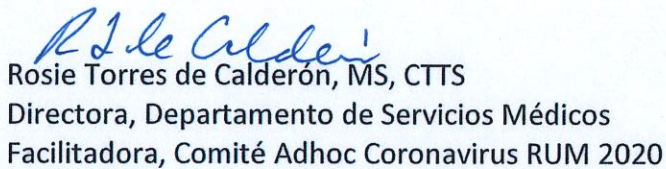 R T de Calderón
Rosie Torres de Calderón, MS, CTTS
Directora, Departamento de Servicios Médicos
Facilitadora, Comité Adhoc Coronavirus RUM 2020